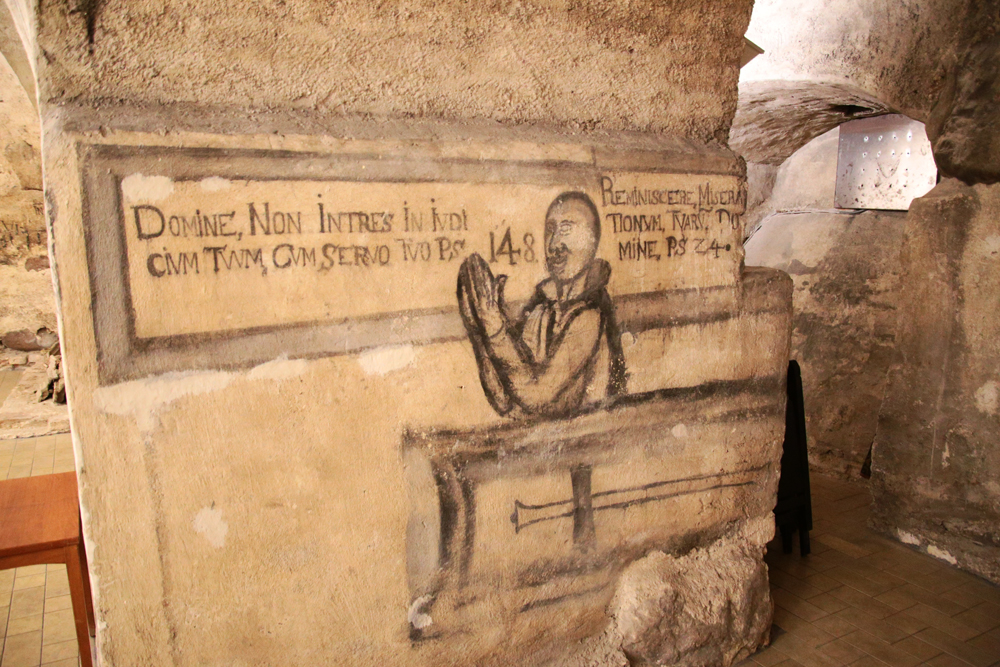 DOMINE, NON INTRES IN IVDI
CIVM TVVM, CVM SERVO TVO PS. 148.
REMINISCERE, MISERA
TIONVM, TVARV, DO
MINE, PS 24.